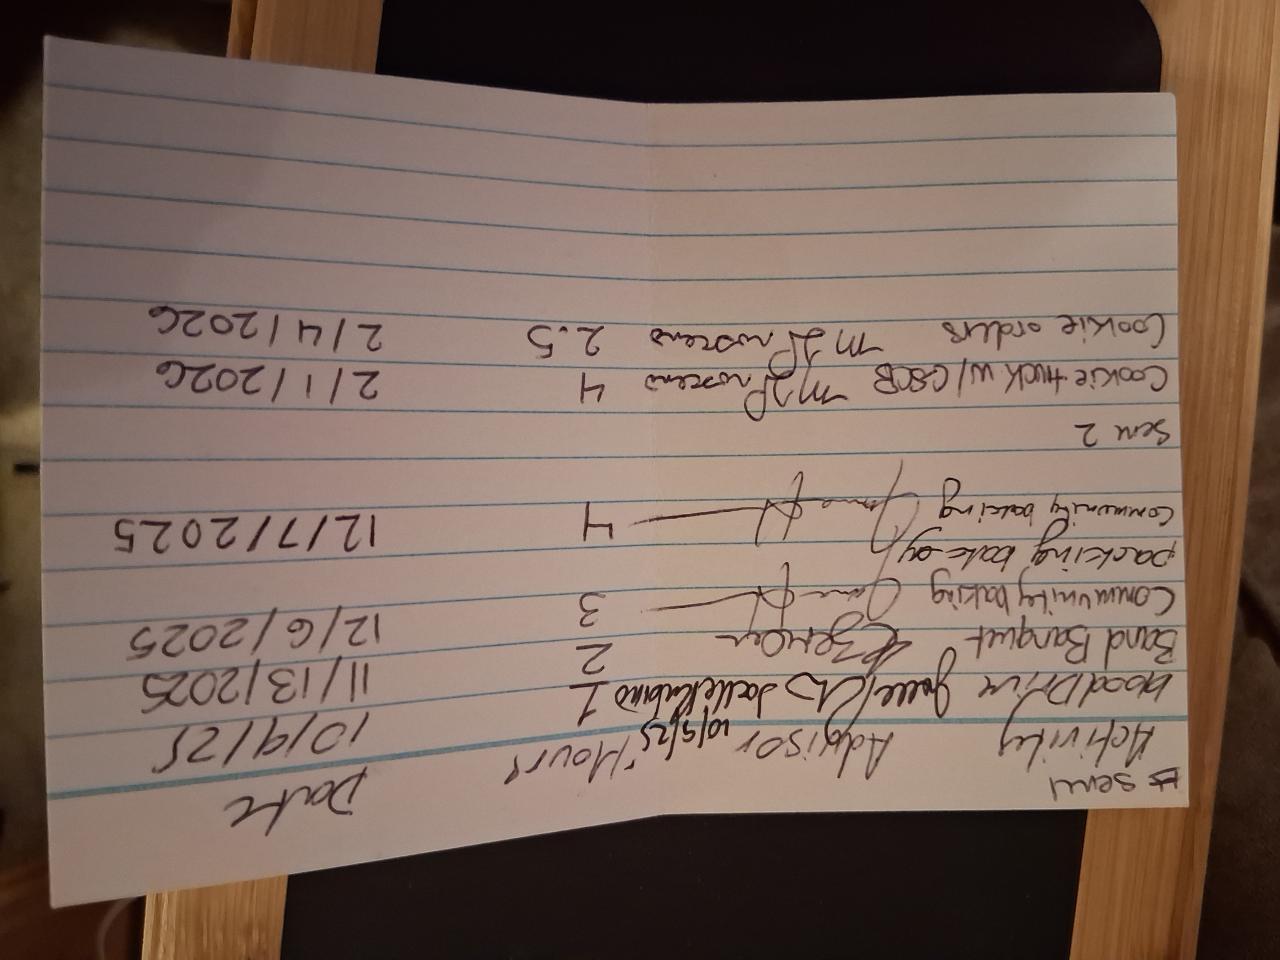 Sem 1
Activity Advisor Hours Date
Blood Drive Joelle Rubino 10/9/25 1 10/9/25
Band Banquet 2 11/13/2025
Community baking 3 12/6/2025
packing
Community baking 4 12/7/2025
Sem 2
Cookie truck w/ 4 2/1/2026
Cookie orders 2.5 2/4/2026